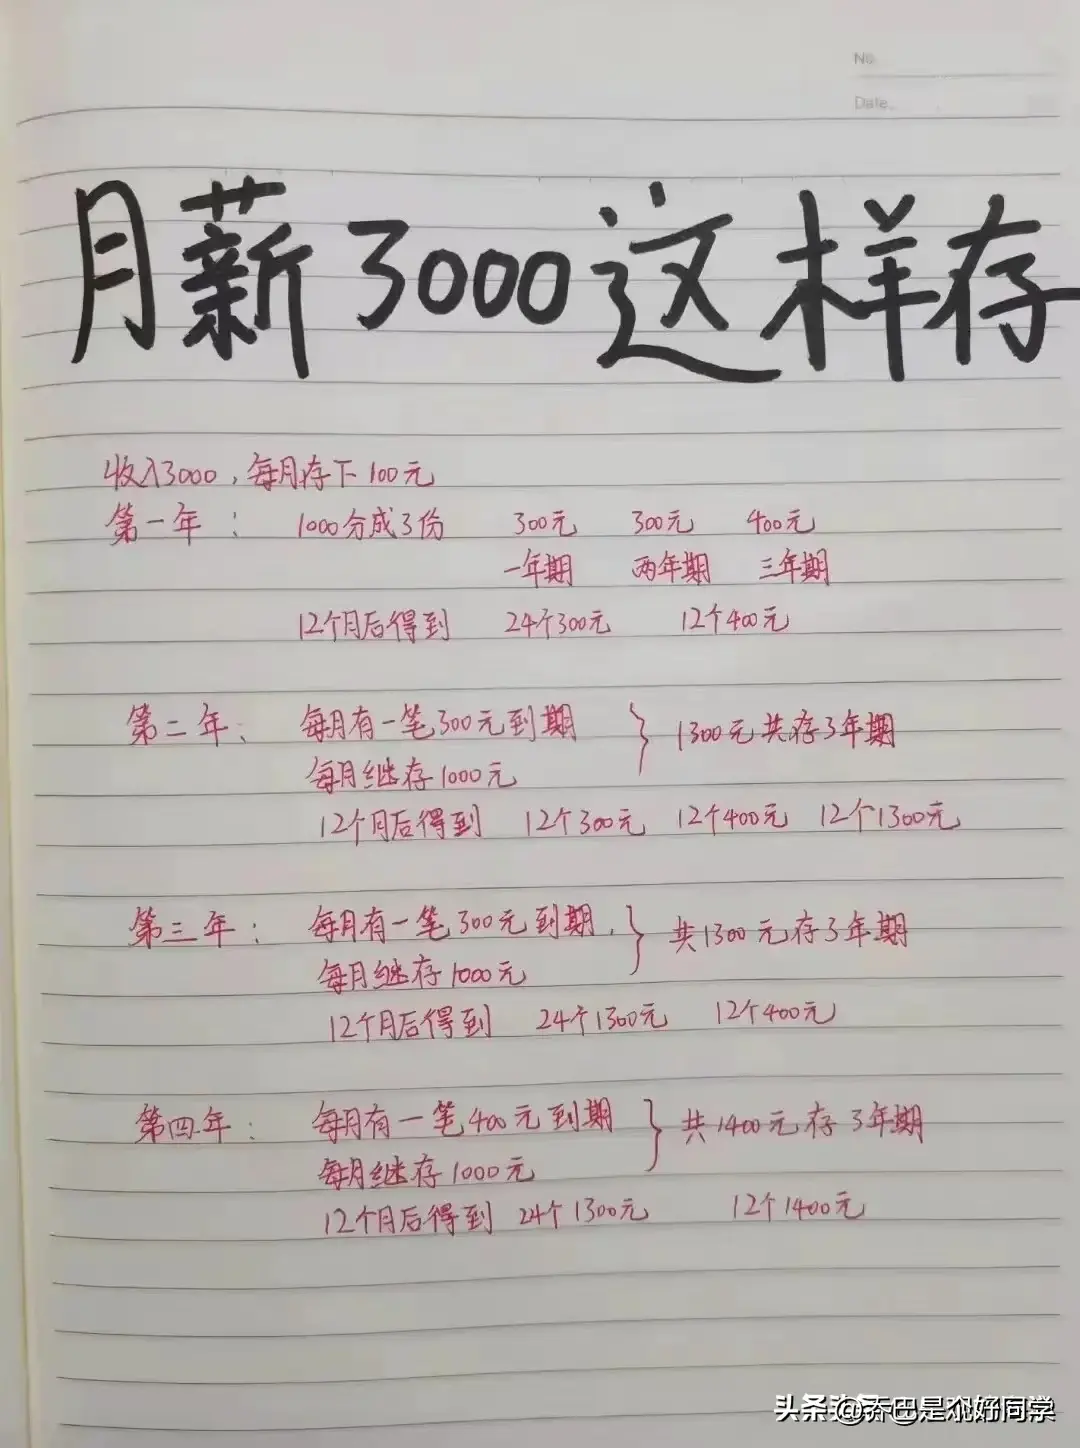 No.
Date.
月薪3000这样存
收入3000，每月存下100元
第一年： 1000分成3份 300元 300元 400元
一年期 两年期 三年期
12个月后得到 24个300元 12个400元
第二年： 每月有一笔300元到期 } 1300元共存3年期
每月继存1000元
12个月后得到 12个300元 12个400元 12个1300元
第三年： 每月有一笔300元到期. } 共1300元存3年期
每月继存1000元
12个月后得到 24个1300元 12个400元
第四年： 每月有一笔400元到期 } 共1400元存3年期
每月继存1000元
12个月后得到 24个1300元 12个1400元
头条 @乔巴是个好同学